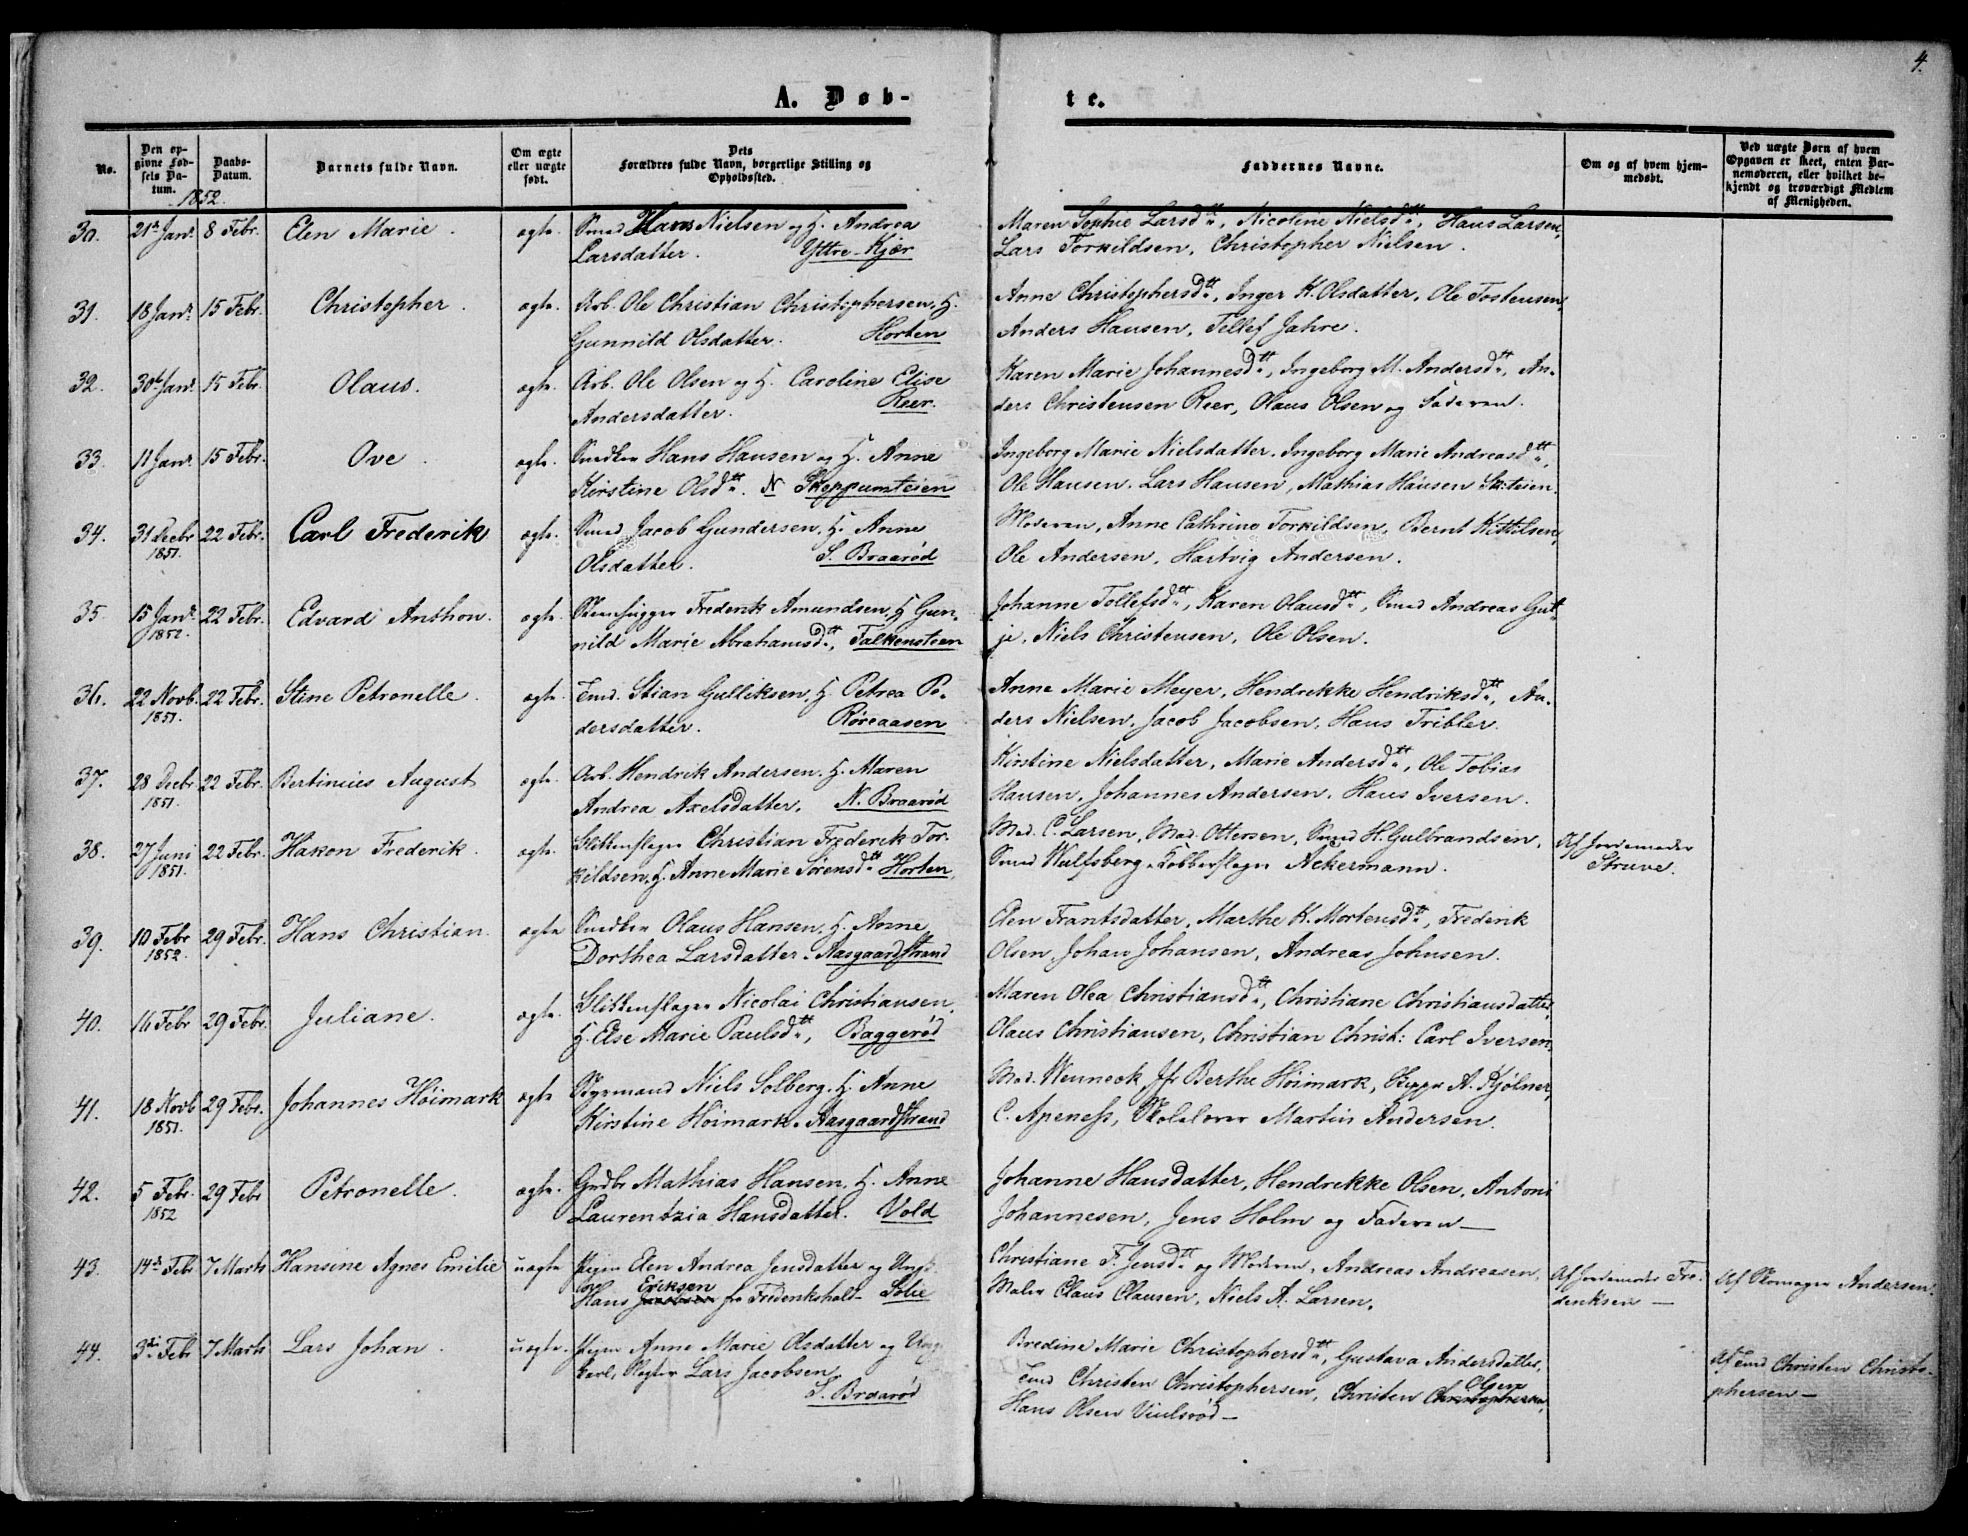 4.
A. Døb-
te.
No.
Den op-
givne Fød-
sels Da-
tum.
1852.
Daabs-
Datum.
Barnets fulde Navn.
Om ægte
eller uægte
født.
Dets
Forældres fulde Navn, borgerlige Stilling og
Opholdssted.
Faddernes Navne.
Om og af hvem hjem-
medøbt.
Ved uægte Børn af hvem
Opgaven er skeet, enten Bar-
nemoderen, eller hvilket be-
kjendt og troværdigt Medlem
af Menigheden.
30. 21de Janr. 8 Febr. Elen Marie. ægte. Smed Hans Nielsen og H. Andrea
Larsdatter. Yttre-Kjær
Maren Sophie Larsdtt., Nicoline Nielsdtt., Hans Larsen,
Lars Torkildsen, Christopher Nielsen.
31. 18 Janr. 15 Febr. Christopher. ægte. Arb. Ole Christian Christophersen, H.
Gunnild Olsdatter. Horten
Anne Christophersdtt., Inger K. Olsdatter, Ole Tostensen,
Anders Hansen, Tellef Jahre.
32. 30te Janr. 15 Febr. Olaus. ægte. Arb. Ole Olsen og H. Caroline Elise
Andersdatter. Reer.
Karen Marie Johannesdtt., Ingeborg M. Andersdtt., An-
ders Christensen Reer, Olaus Olsen og Faderen.
33. 11 Janr. 15 Febr. Ove. ægte. Snedker Hans Hansen og H. Anne
Kirstine Olsdtt. N Skeppumteien
Ingeborg Marie Nielsdatter, Ingeborg Marie Andreasdtt.,
Ole Hansen, Lars Hansen, Mathias Hansen Sk:teien.
34. 31 Decbr 22 Febr. Carl Frederik ægte. Smed Jacob Gundersen, H. Anne
1851. Olsdatter. S. Braarød
Moderen, Anne Cathrine Torkildsen, Bernt Kittilsen,
Ole Andersen, Hartvig Andersen.
35. 15 Janr. 22 Febr. Edvard Anthon. ægte. Steenhugger Frederik Amundsen, H Gun-
1852. nild Marie Abrahamsdtt., Falkensteen
Johanne Tollefsdtt., Karen Olausdtt., Smed Andreas Gut-
je, Niels Christensen, Ole Olsen.
36. 22 Novb. 22 Febr. Stine Petronelle. ægte. Tmd. Stian Gulliksen, H Petrea Pe-
1851. dersdatter. Røreaasen
Anne Marie Meyer, Hendrekke Hendriksdtt., An-
ders Nielsen, Jacob Jacobsen, Hans Tribler.
37. 28 Decbr. 22 Febr. Bertinius August ægte. Arb. Hendrik Andersen, H. Maren
1851. Andrea Axelsdatter. N. Braarød
Kirstine Nielsdatter, Marie Andersdtt., Ole Tobias
Hansen, Johannes Andersen, Hans Iversen.
38. 27 Juni 22 Febr. Hakon Frederik. ægte. Blikkenslager Christian Frederik Tor-
1851. kildsen, H. Anne Marie Sørensdtt. Horten
Mad. C. Larsen, Mad. Ottersen, Smed H. Gulbrandsen,
Smed Wulfsberg, Kobberslager Ackermann.
Af Jordemoder
Struve.
39. 10 Febr 29 Febr. Hans Christian. ægte Snedker Olaus Hansen, H. Anne
1852. Dorthea Larsdatter. Aasgaardstrand
Elen Frantsdatter, Marthe K. Mortensdtt., Frederik
Olsen, Johan Johansen, Andreas Johnsen.
40. 16 Febr 29 Febr. Juliane. ægte. Blikkenslager Nicolai Christiansen,
H. Else Marie Paulsdtt., Baggerød
Maren Olea Christiansdtt., Christiane Christiansdatter,
Olaus Christiansen, Christian Christ: Carl Iversen.
41. 18 Novb 29 Febr. Johannes Høimark ægte Styrmand Niels Solberg, H. Anne
1851. Kirstine Høimark. Aasgaardstrand
Mad. Wenneck, Jfr Berthe Høimark, Skipper A. Kjølner,
C. Apeness, Skolelærer Martin Andersen.
42. 5 Febr. 29 Febr Petronelle. ægte. Grdbr Mathias Hansen, H. Anne
1852 Laurentzia Hansdatter. Vold
Johanne Hansdatter, Hendrekke Olsen, Antoni
Johannesen, Jens Holm og Faderen —
43. 14de Febr 7 Marts Hansine Agnes Emilie uægte Pigen Elen Andrea Jensdatter og Ungk.
Eriksen
Hans fra Frederikshald. Solie
Christiane F. Jensdtt og Moderen, Andreas Andreasen,
Maler Claus Clausen, Niels A. Larsen.
Af Jordemoder Fre-
deriksen —
Af Skomager Andersen.
44. 3die Febr 7 Marts Lars Johan. uægte. Pigen Anne Marie Olsdatter og Ung-
karl, Slagter Lars Jacobsen,
S. Braarød
Bredine Marie Christophersdtt., Gustava Andersdatter,
Olsen
Tmd Christen Christophersen, Christen Christophersen,
Hans Olsen Viulsrød —
Af Tmd Christen Christo-
phersen —